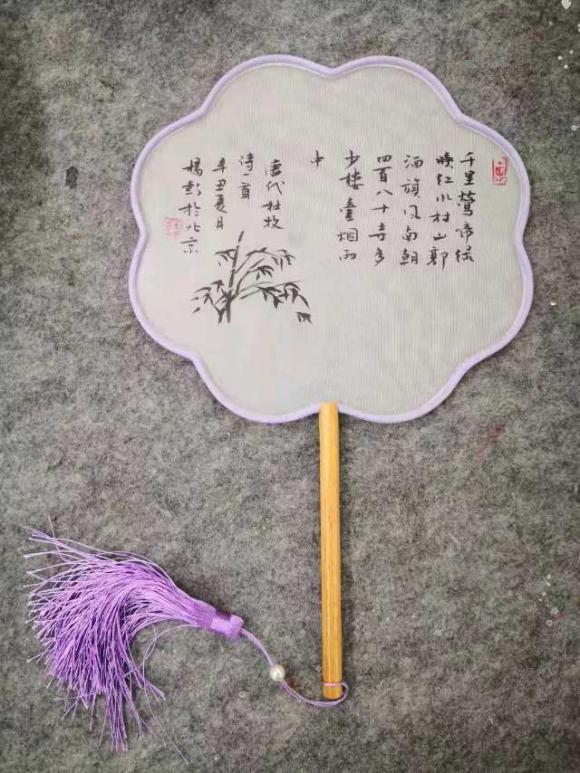 千里莺啼绿
映红水村山郭
酒旗风南朝
四百八十寺多
少楼台烟雨
中
唐代杜牧
诗一首
辛丑夏月
杨彭於北京